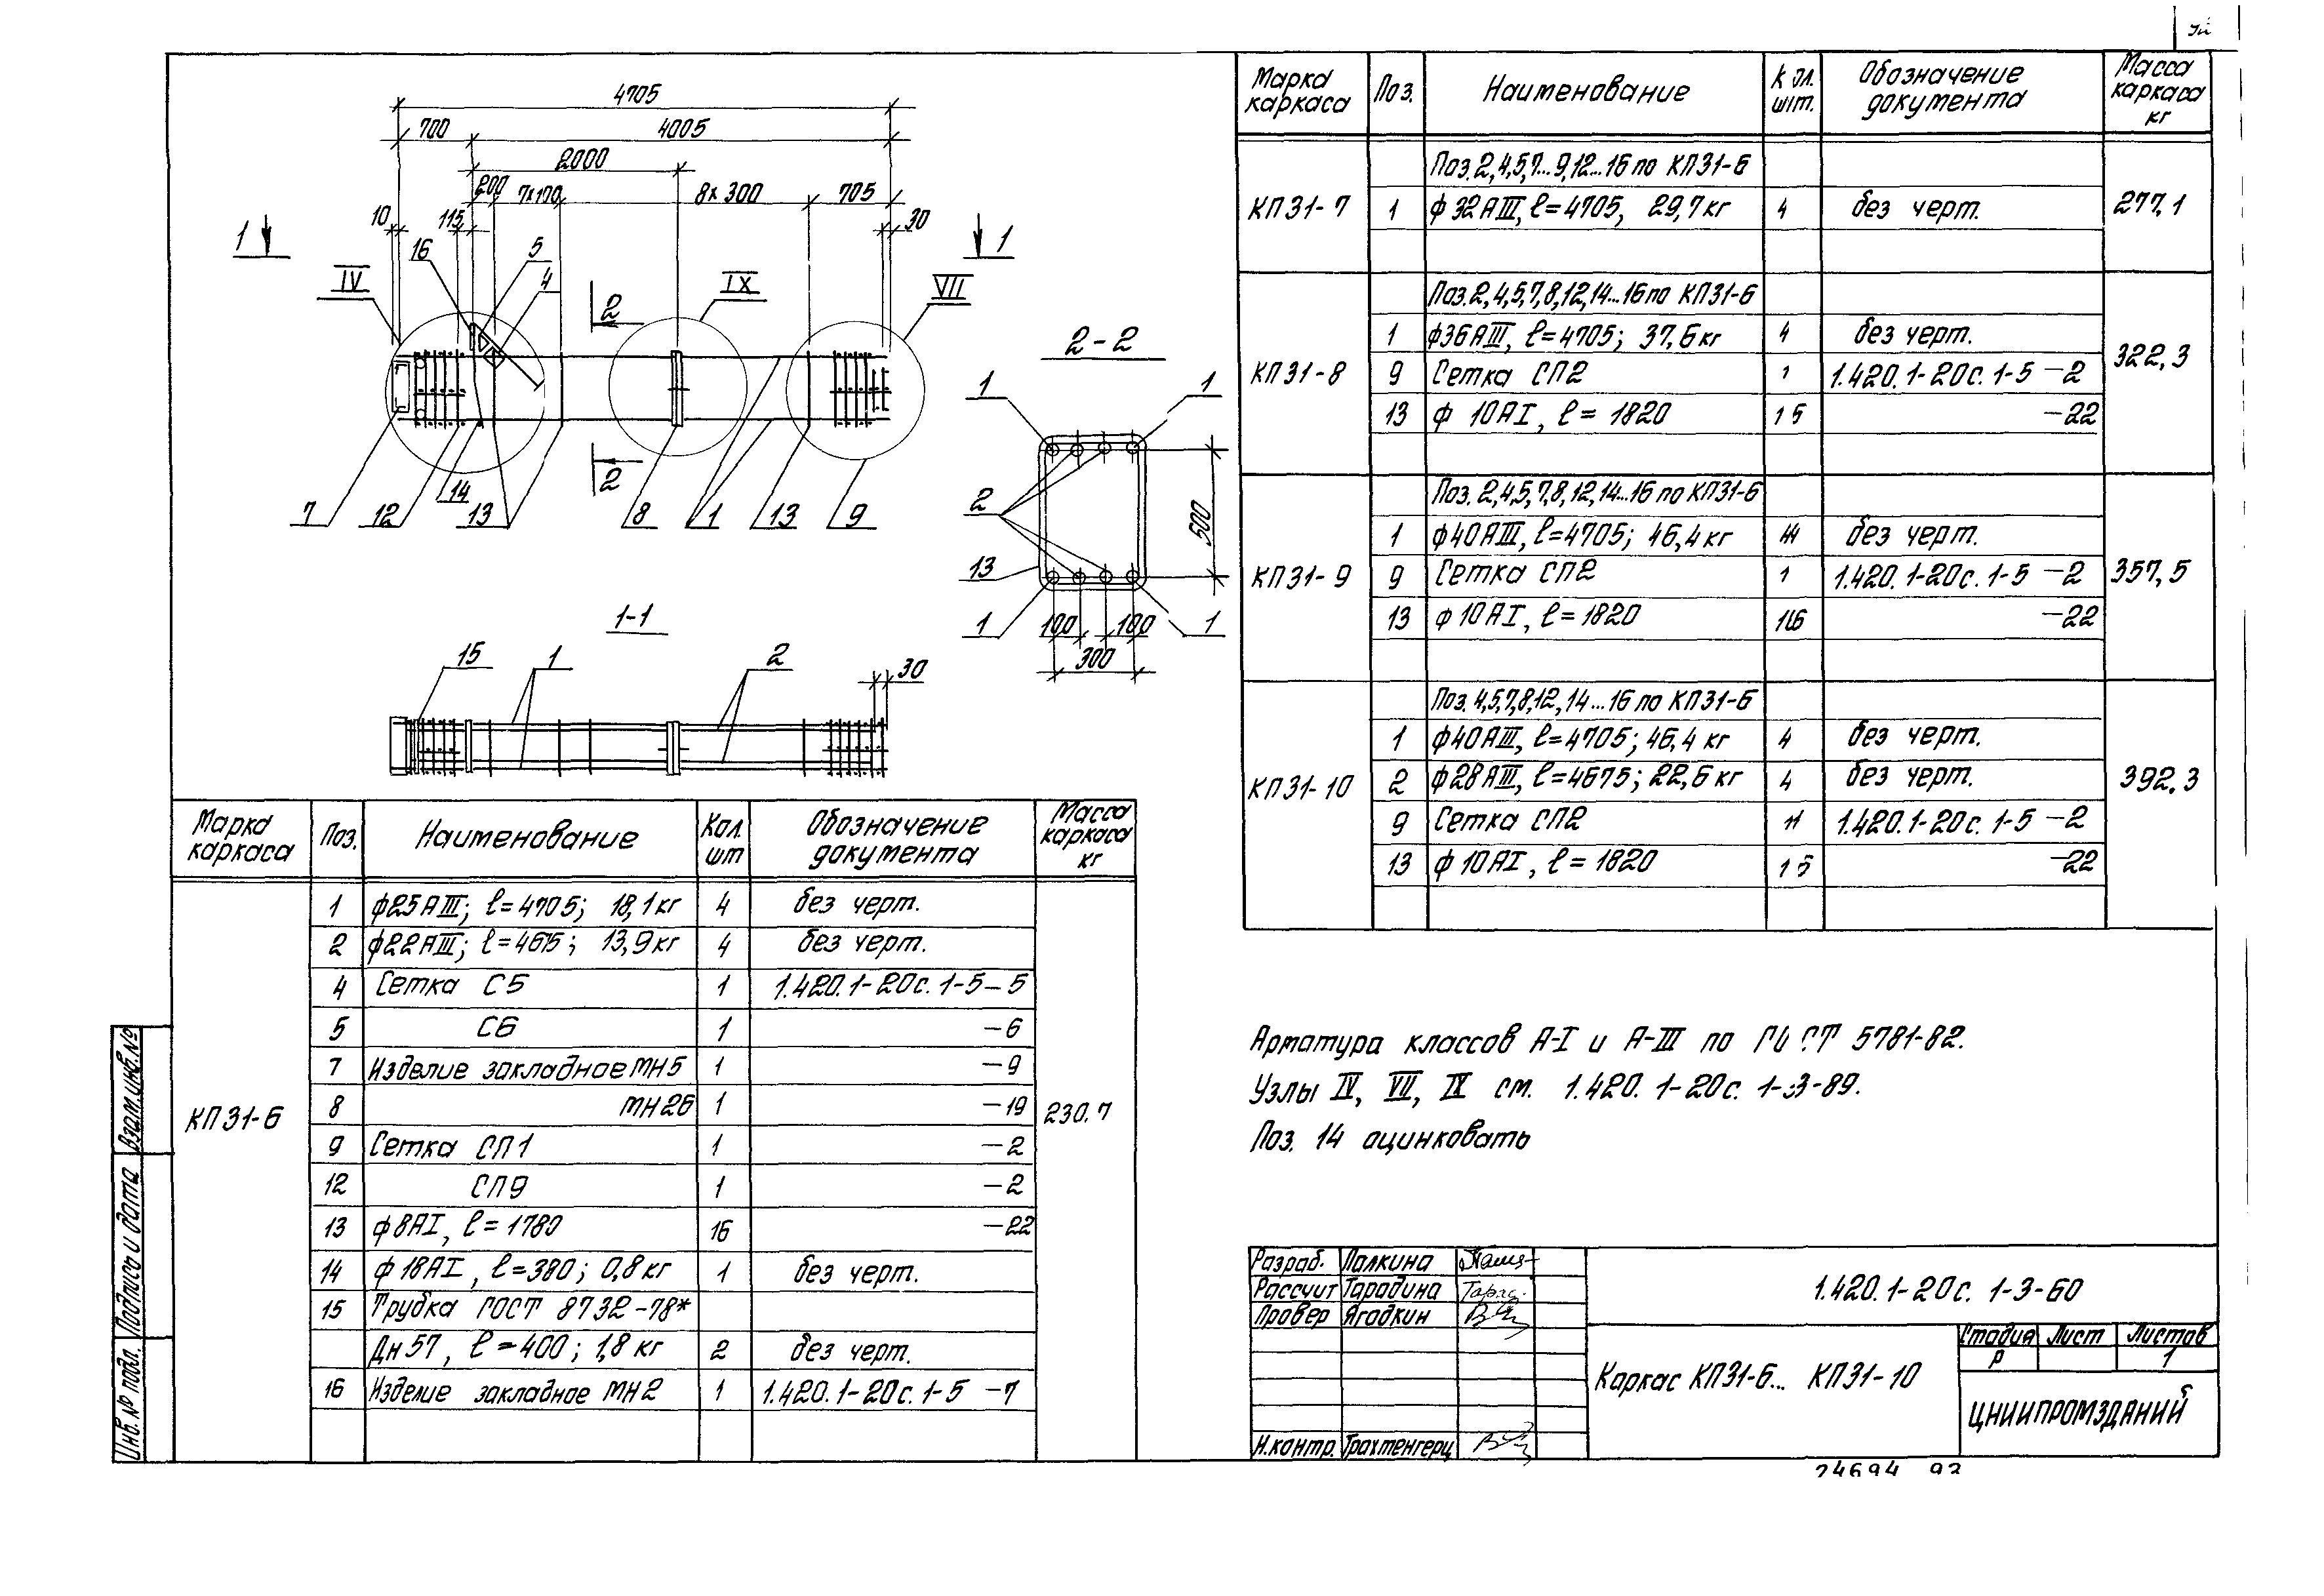 4705
700 4005
2000
200 7х100 8х300 705
10 115 30
1 1
16 5 4
IV IX VII
2
2
7 12 14 13 8 1 13 9
2-2
1 1
2
13
500
1 1
100 100
300
1-1
15 1 2 30
Марка каркаса Поз. Наименование Кол. шт Обозначение документа Масса каркаса кг
КП31-6 230.7
1 ф25АIII; ℓ=4705; 18,1кг 4 без черт.
2 ф22АIII; ℓ=4675; 13,9кг 4 без черт.
4 Сетка С5 1 1.420.1-20с.1-5-5
5 С6 1 -6
7 Изделие закладное МН5 1 -9
8 МН26 1 -19
9 Сетка СП1 1 -2
12 СП9 1 -2
13 ф8АI, ℓ=1780 16 -22
14 ф18АI, ℓ=380; 0,8кг 1 без черт.
15 Трубка ГОСТ 8732-78*
Дн57, ℓ=400; 1,8кг 2 без черт.
16 Изделие закладное МН2 1 1.420.1-20с.1-5 -7
Марка каркаса Поз. Наименование Кол. шт. Обозначение документа Масса каркаса кг
Поз.2,4,5,7...9,12...16 по КП31-6
КП31-7 1 ф32АIII, ℓ=4705, 29,7кг 4 без черт. 277,1
Поз.2,4,5,7,8,12,14...16 по КП31-6
1 ф36АIII, ℓ=4705; 37,6кг 4 без черт.
КП31-8 9 Сетка СП2 1 1.420.1-20с.1-5 -2 322,3
13 ф 10АI, ℓ=1820 15 -22
Поз. 2,4,5,7,8,12,14...16 по КП31-6
1 ф40АIII, ℓ=4705; 46,4кг 4 без черт.
КП31-9 9 Сетка СП2 1 1.420.1-20с.1-5 -2 357,5
13 ф10АI, ℓ=1820 16 -22
Поз. 4,5,7,8,12,14...16 по КП31-6
1 ф40АIII, ℓ=4705; 46,4 кг 4 без черт.
КП31-10 2 ф28АIII, ℓ=4675; 22,6кг 4 без черт. 392.3
9 Сетка СП2 1 1.420.1-20с.1-5 -2
13 ф10АI, ℓ=1820 15 -22
Арматура классов А-I и А-III по ГОСТ 5781-82.
Узлы IV, VII, IX см. 1.420.1-20с. 1-3-89.
Поз. 14 оцинковать
Разраб. Палкина
Рассчит Тарадина
Провер Ягодкин
Н.контр. Трахтенгерц
1.420.1-20с. 1-3-60
Каркас КП31-6... КП31-10
Стадия Лист Листов
Р 1
ЦНИИПРОМЗДАНИЙ
Взам.инв.№
Подпись и дата
Инв.№ подл.
24694 92